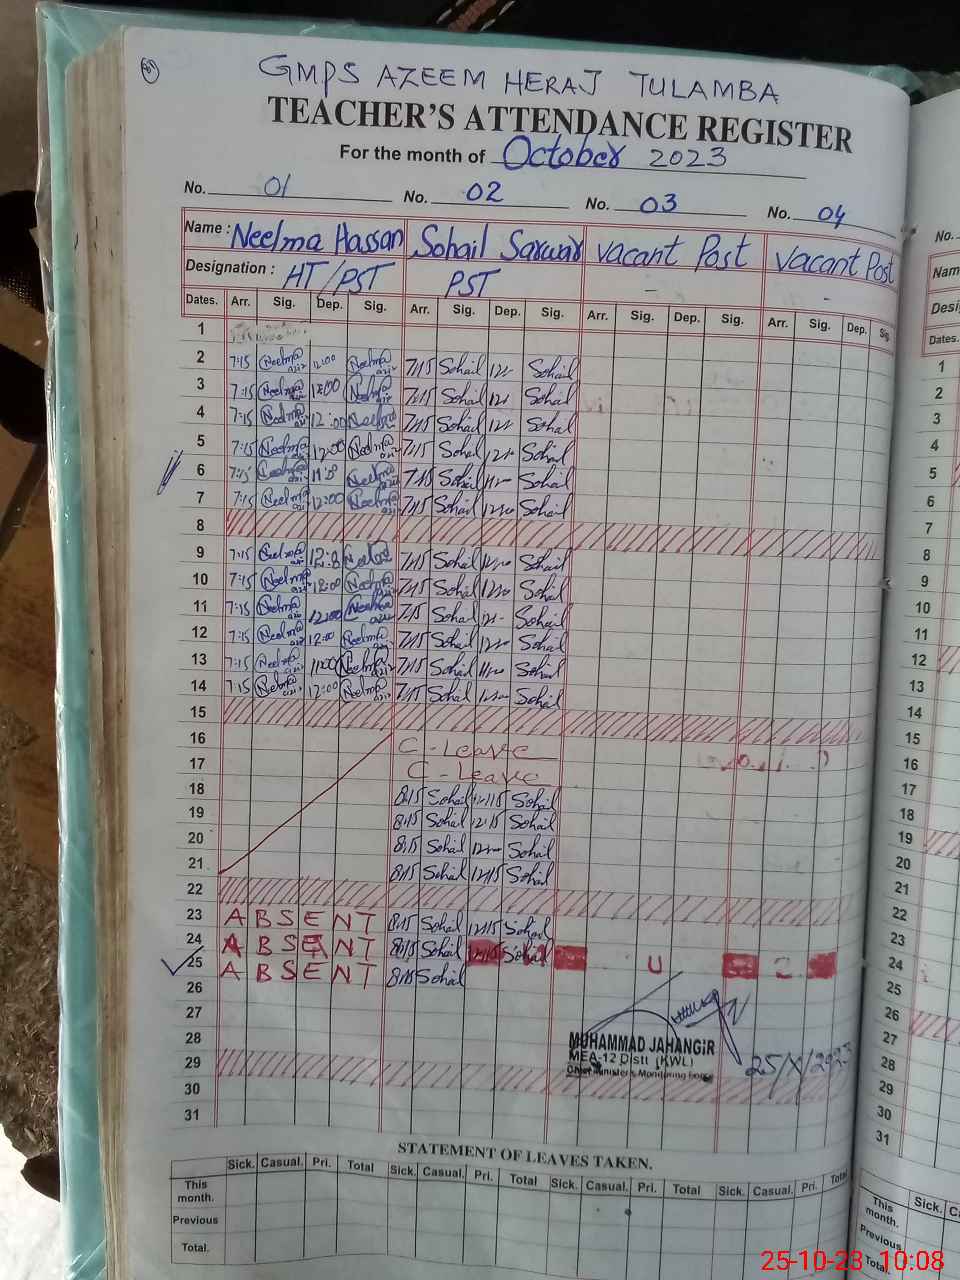 GMPS AZEEM HERAJ TULAMBA
TEACHER'S ATTENDANCE REGISTER
For the month of October 2023
No. 01 No. 02 No. 03 No. 04
Name : Neelma Hassan Sohail Sarwar Vacant Post Vacant Post
Designation : HT/PST PST - -
Dates. Arr. Sig. Dep. Sig. Arr. Sig. Dep. Sig. Arr. Sig. Dep. Sig. Arr. Sig. Dep. Sig.
1
2 7:15 Neelma 12:00 Neelma 7:15 Sohail Sohail
3 7:15 Neelma 12:00 Neelma 7:15 Sohail Sohail
4 7:15 Neelma 12:00 Neelma 7:15 Sohail Sohail
5 7:15 Neelma 12:00 Neelma 7:15 Sohail Sohail
6 7:15 Neelma Neelma 7:15 Sohail Sohail
7 7:15 Neelma 12:00 Neelma 7:15 Sohail Sohail
8
9 7:15 Neelma Neelma 7:15 Sohail Sohail
10 7:15 Neelma 12:00 Neelma 7:15 Sohail Sohail
11 7:15 Neelma 12:00 Neelma 7:15 Sohail Sohail
12 7:15 Neelma 12:00 Neelma 7:15 Sohail Sohail
13 7:15 Neelma 11:00 Neelma 7:15 Sohail Sohail
14 7:15 Neelma 12:00 Neelma 7:15 Sohail Sohail
15
16 C-Leave
17 C-Leave
18 8:15 Sohail 12:15 Sohail
19 8:15 Sohail 12:15 Sohail
20 8:15 Sohail Sohail
21 8:15 Sohail 12:15 Sohail
22
23 ABSENT 8:15 Sohail 12:15 Sohail
24 ABSENT 8:15 Sohail 12:15 Sohail
25 ABSENT 8:15 Sohail
26
27
28
29
30
31
MUHAMMAD JAHANGIR
MEA-12 Distt (KWL)
Chief Minister's Monitoring Force
25/X/2023
STATEMENT OF LEAVES TAKEN.
Sick. Casual. Pri. Total Sick. Casual. Pri. Total Sick. Casual. Pri. Total Sick. Casual. Pri. Total
This month.
Previous
Total.
No.
Name
Dates.
1
2
3
4
5
6
7
8
9
10
11
12
13
14
15
16
17
18
19
20
21
22
23
24
25
26
27
28
29
30
31
Sick.
This month.
Previous
Total.
25-10-23 10:08